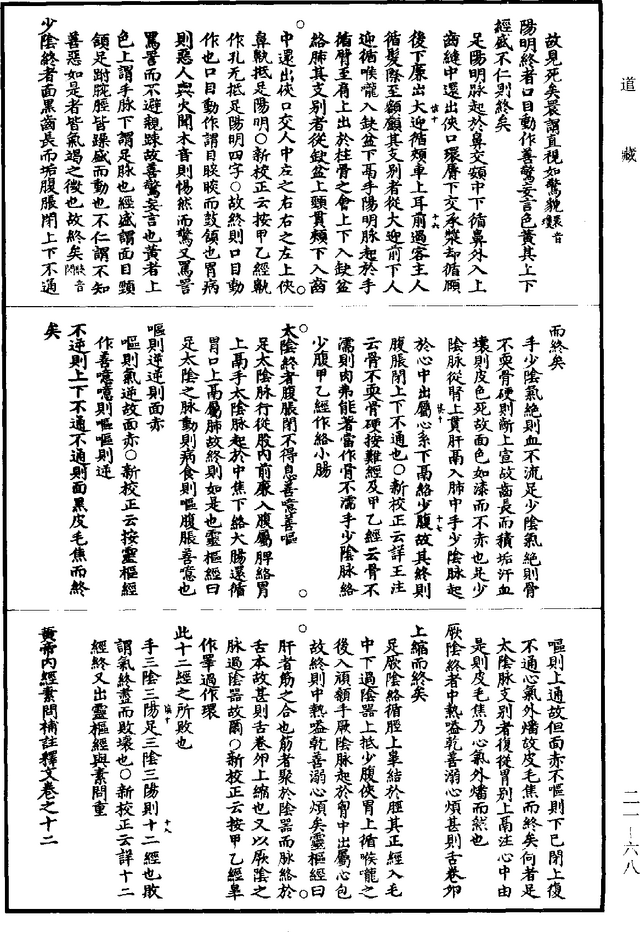 道藏
故見死矣睘謂直視如驚貌睘音
陽明終者口目動作善驚妄言色黃其上下
經盛不仁則終矣
足陽明脉起於鼻交頞中下循鼻外入上
齒縫中還出俠口環脣下交承漿却循頤
後下廉出大迎循頰車上耳前過客主人
循髮際至額顱其支別者從大迎前下人
迎循喉嚨入缺盆下鬲手陽明脉起於手
循臂至肩上出於柱骨之會上下入缺盆
絡肺其支別者從缺盆上頸貫頰下入齒
中還出俠口交人中左之右右之左上俠
鼻鼽抵足陽明○新校正云按甲乙經鼽
作孔无抵足陽明四字○故終則口目動
作也口目動作謂目睒睒而鼓頷也胃病
則惡人與火聞木音則惕然而驚又罵詈
罵詈而不避親踈故善驚妄言也黃者上
色上謂手脉下謂足脉也經盛謂面目頸
頷足跗腕脛皆躁盛而動也不仁謂不知
善惡如是者皆氣竭之徵也故終矣
少陰終者面黑齒長而垢腹脹閉上下不通
而終矣
手少陰氣絕則血不流足少陰氣絕則骨
不耎骨硬則齗上宣故齒長而積垢汗血
壞則皮色死故面色如漆而不赤也足少
陰脉從腎上貫肝鬲入肺中手少陰脉起
於心中出屬心系下鬲絡少腹故其終則
腹脹閉上下不通也○新校正云詳王注
云骨不耎骨硬按難經及甲乙經云骨不
濡則肉弗能著當作骨不濡手少陰脉絡
少腹甲乙經作絡小腸
太陰終者腹脹閉不得息善噫善嘔
足太陰脉行從股內前廉入腹屬脾絡胃
上鬲手太陰脉起於中焦下絡大腸還循
胃口上鬲屬肺故終則如是也靈樞經曰
足太陰之脉動則病食則嘔腹脹善噫也
嘔則逆逆則面赤
嘔則氣逆故面赤○新校正云按靈樞經
作善噫噫則嘔嘔則逆
不逆則上下不通不通則面黑皮毛焦而終
矣
嘔則上通故但面赤不嘔則下已閉上復
不通心氣外燔故皮毛焦而終矣何者足
太陰脉支別者復從胃別上鬲注心中由
是則皮毛焦乃心氣外燔而然也
厥陰終者中熱嗌乾善溺心煩甚則舌卷卵
上縮而終矣
足厥陰絡循脛上睾結於莖其正經入毛
中下過陰器上抵少腹俠胃上循喉嚨之
後入頏顙手厥陰脉起於胷中出屬心包
故終則中熱嗌乾善溺心煩矣靈樞經曰
肝者筋之合也筋者聚於陰器而脉絡於
舌本故甚則舌卷卵上縮也又以厥陰之
脉過陰器故爾○新校正云按甲乙經睾
作睪過作環
此十二經之所敗也
手三陰三陽足三陰三陽則十二經也敗
謂氣終盡而敗壞也○新校正云詳十二
經終又出靈樞經與素問重
黃帝內經素問補註釋文卷之十二
二一—六八